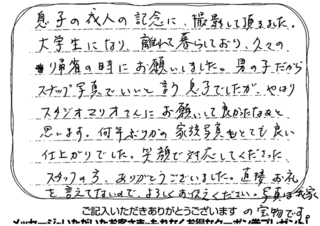 息子の成人の記念に、撮影して頂きました。
大学生になり、離れて暮らしており、久々の
帰省の時にお願いしました。男の子だから
スナップ写真でいいと言う息子でしたが、やはり
スタジオマリオさんにお願いして良かったなぁと
思います。何年ぶりかの家族写真もとても良い
仕上がりでした。笑顔で対応してくださった
スタッフの方、ありがとうございました。直接お礼
を言えてないので、よろしくお伝えください。写真は我家
の宝物です。
ご記入いただきありがとうございます
メッセージをいただいたお客さまへもれなくお得なクーポン券プレゼント!